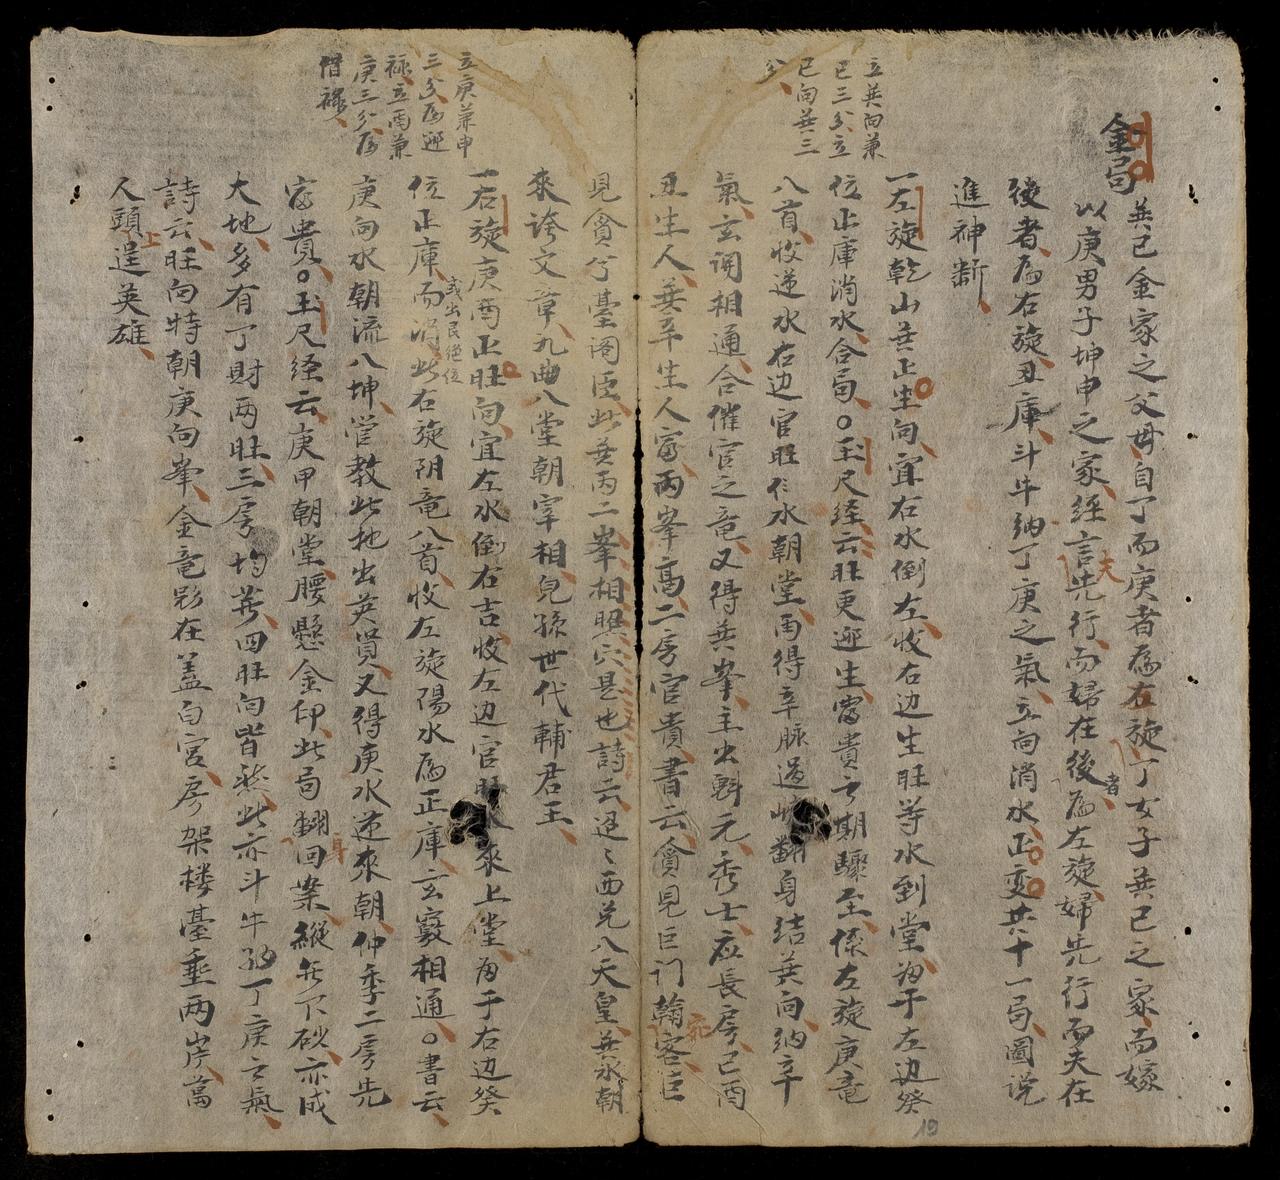 金局
巽巳金家之父母自丁而庚者為左旋丁女子巽巳之家而嫁
以庚男子坤申之家経言夫先行而婦在後者為左旋婦先行而夫在
後者為右旋丑庫斗牛納丁庚之氣立向消水正変共十一局圖説
進神断
立巽向兼
巳三分立
巳向巽三
分
一左旋乾山巽正生向宜右水倒左收右边生旺等水到堂為于左边癸
位正庫消水合局○玉尺経云旺更迎生富貴之期驟至係左旋庚竜
八首收逆水右边官旺位水朝堂而得辛脉過峡翻身結巽向納辛
氣玄関相通合催官之竜又得巽峯主出魁元秀士应長房己酉
丑生人巽辛生人富丙峯高二房官貴書云貪見巨门翰宛客巨
見貪兮臺阁臣此巽丙二峯相照穴是也詩云迢々西兑八天皇巽水朝
來誇文章九曲八堂朝宰相兒孫世代輔君王
立庚兼申
三分為迎
禄立酉兼
庚三分為
借禄
一右旋庚酉正旺向宜左水倒右吉收左边官旺水來上堂為于右边癸
位正庫而消此右旋阴竜八首收左旋陽水為正庫玄竅相通○書云
或出艮絶位
庚向水朝流八坤管教此地出英賢又得庚水逆來朝仲季二房先
富貴○玉尺経云庚甲朝堂腰懸金印此局翻身回案縱無下砂亦成
大地多有丁財两旺三房均等四旺向皆然此亦斗牛納丁庚之氣
詩云旺向特朝庚向峯金竜影在蓋白宮房架楼臺垂两岸萬
人頭上逞英雄
19